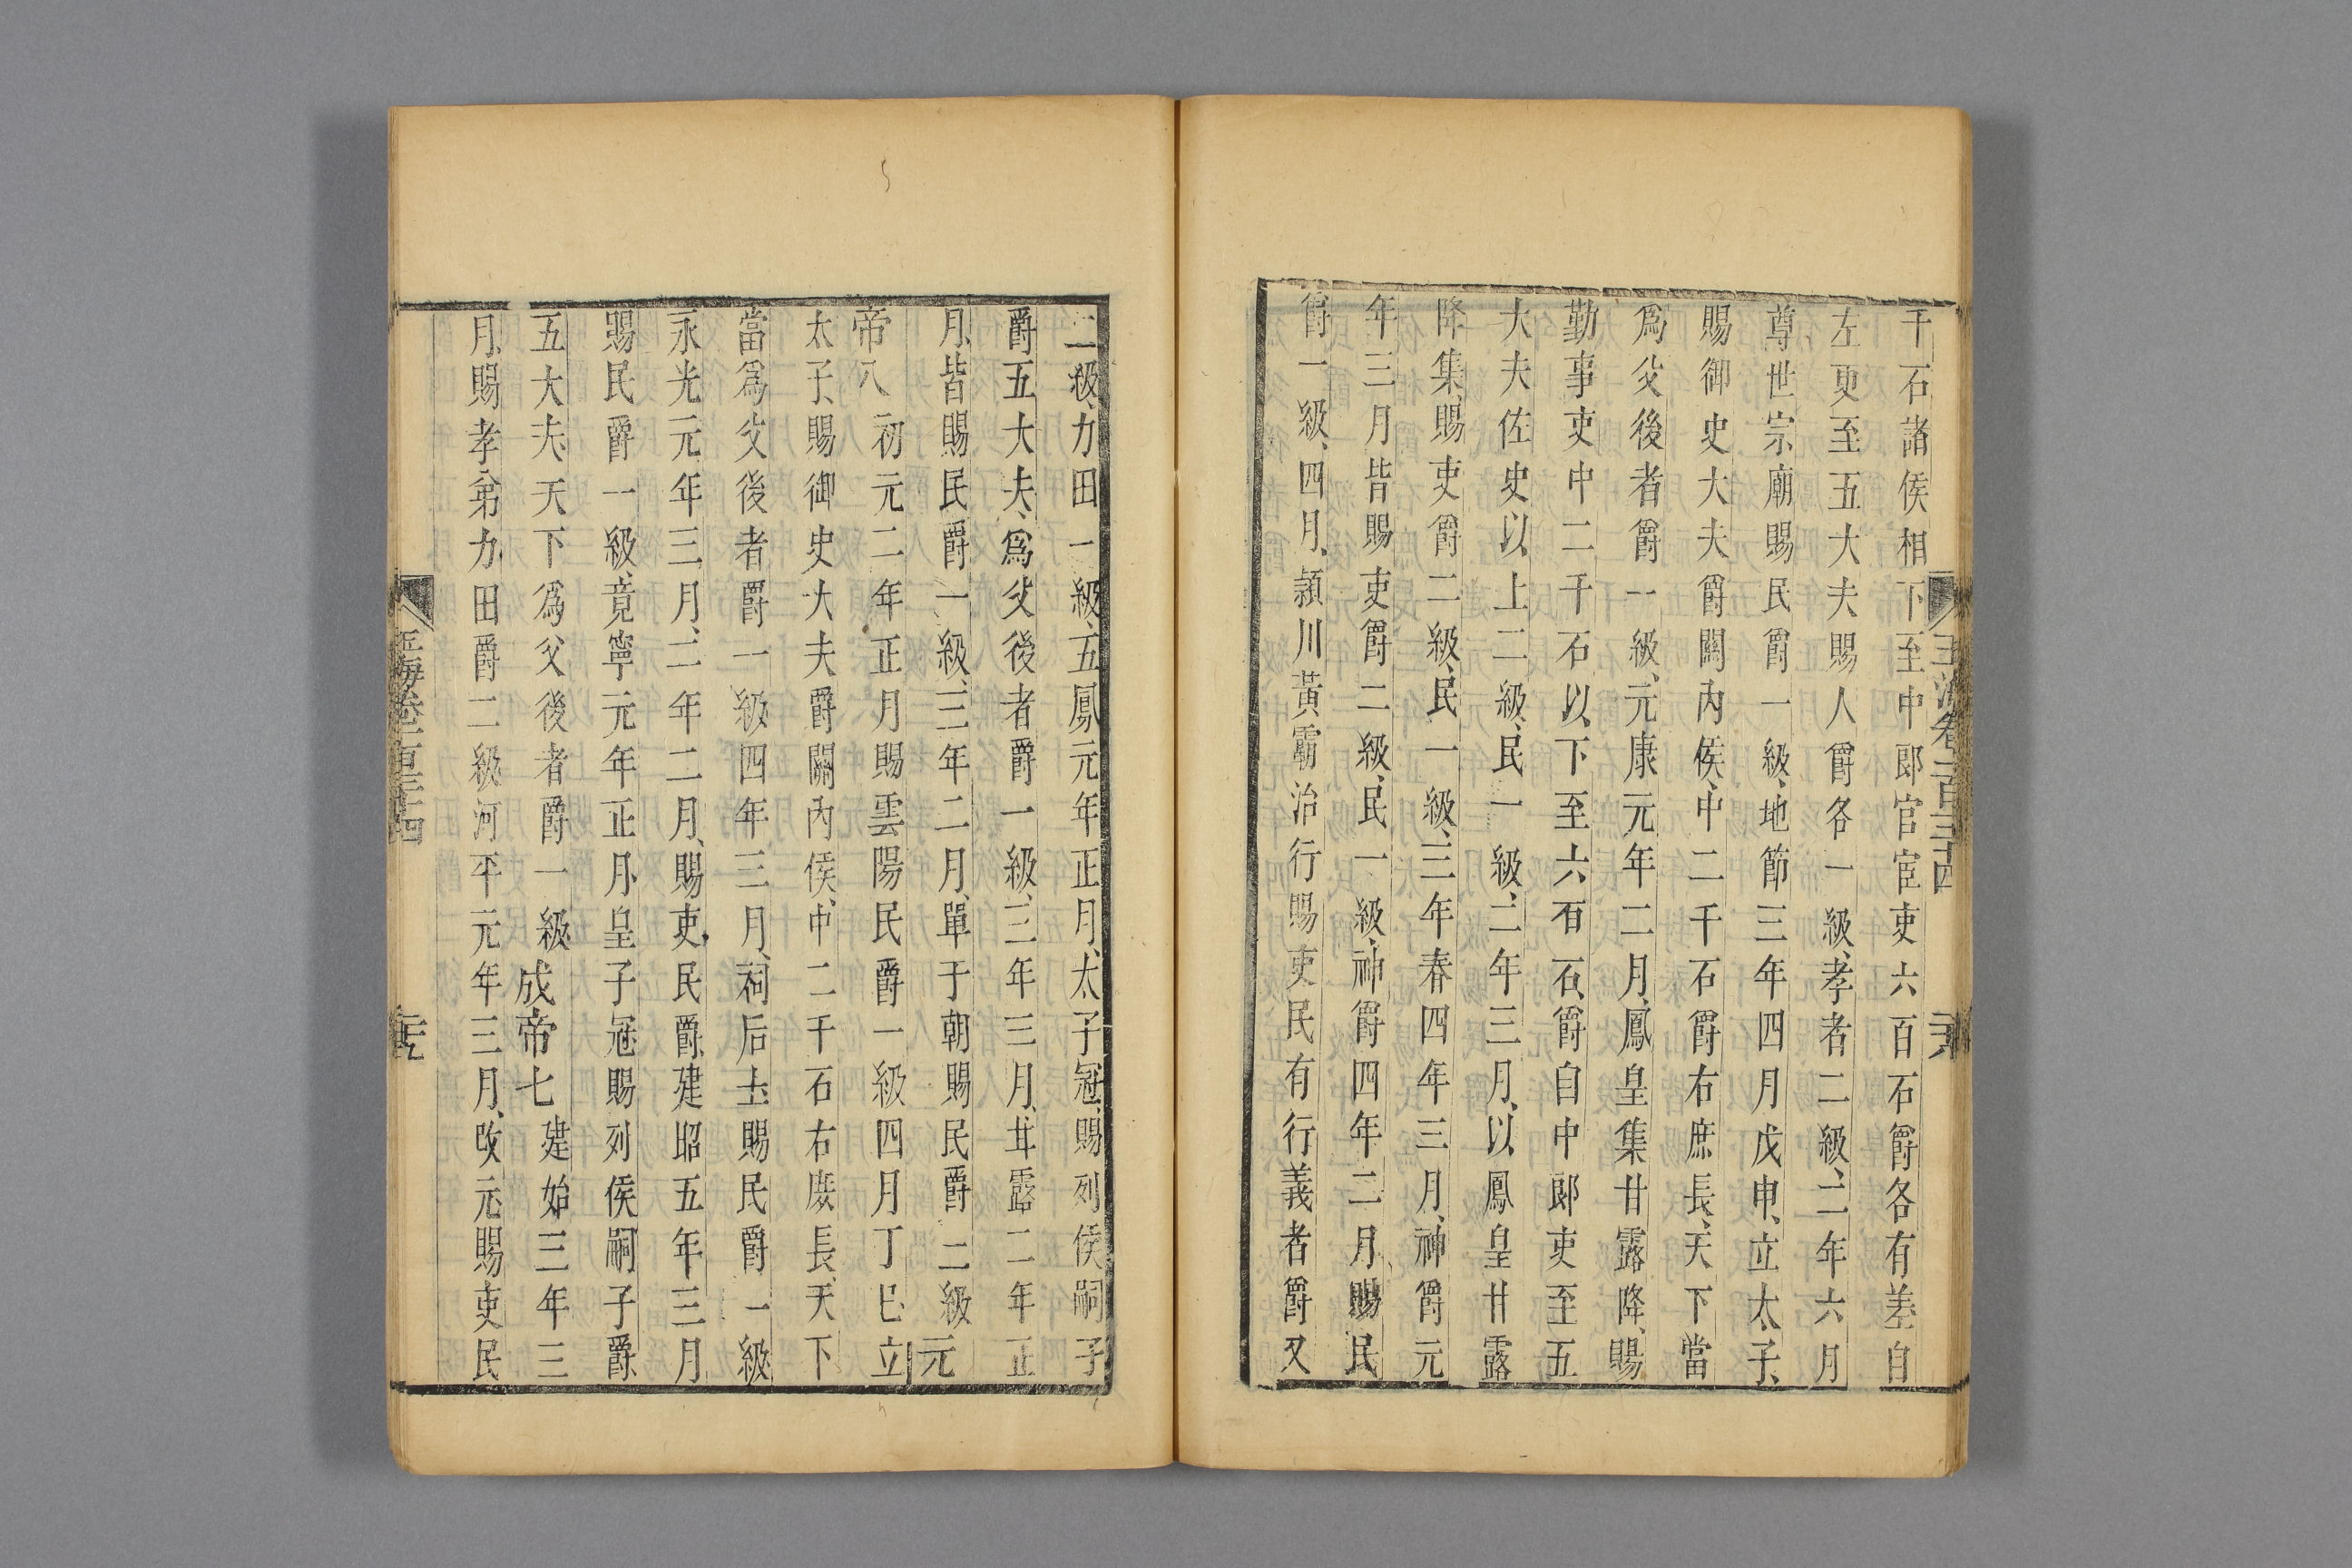 千石諸侯相下至中郎官宦吏六百石爵各有差自
左更至五大夫賜人爵各一級孝者二級二年六月
尊世宗廟賜民爵一級地節三年四月戊申立太子
賜御史大夫爵關內侯中二千石爵右庶長天下當
爲父後者爵一級元康元年二月鳳皇集甘露降賜
勤事吏中二千石以下至六百石爵自中郎吏至五
大夫佐史以上二級民一級二年三月以鳳皇甘露
降集賜吏爵二級民一級三年春四年三月神爵元
年三月皆賜吏爵二級民一級神爵四年二月賜民
爵一級四月潁川黃霸治行賜吏民有行義者爵又
二級力田一級五鳳元年正月太子冠賜列侯嗣子
爵五大夫爲父後者爵一級三年三月甘露二年正
月皆賜民爵一級三年二月單于朝賜民爵二級元
帝八初元二年正月賜雲陽民爵一級四月丁巳立
太子賜御史大夫爵關內侯中二千石右庶長天下
當爲父後者爵一級四年三月祠后土賜民爵一級
永光元年三月二年二月賜吏民爵建昭五年三月
賜民爵一級竟寧元年正月皇子冠賜列侯嗣子爵
五大夫天下爲父後者爵一級成帝七建始三年三
月賜孝弟力田爵二級河平元年三月改元賜吏民
玉海卷一百三十四